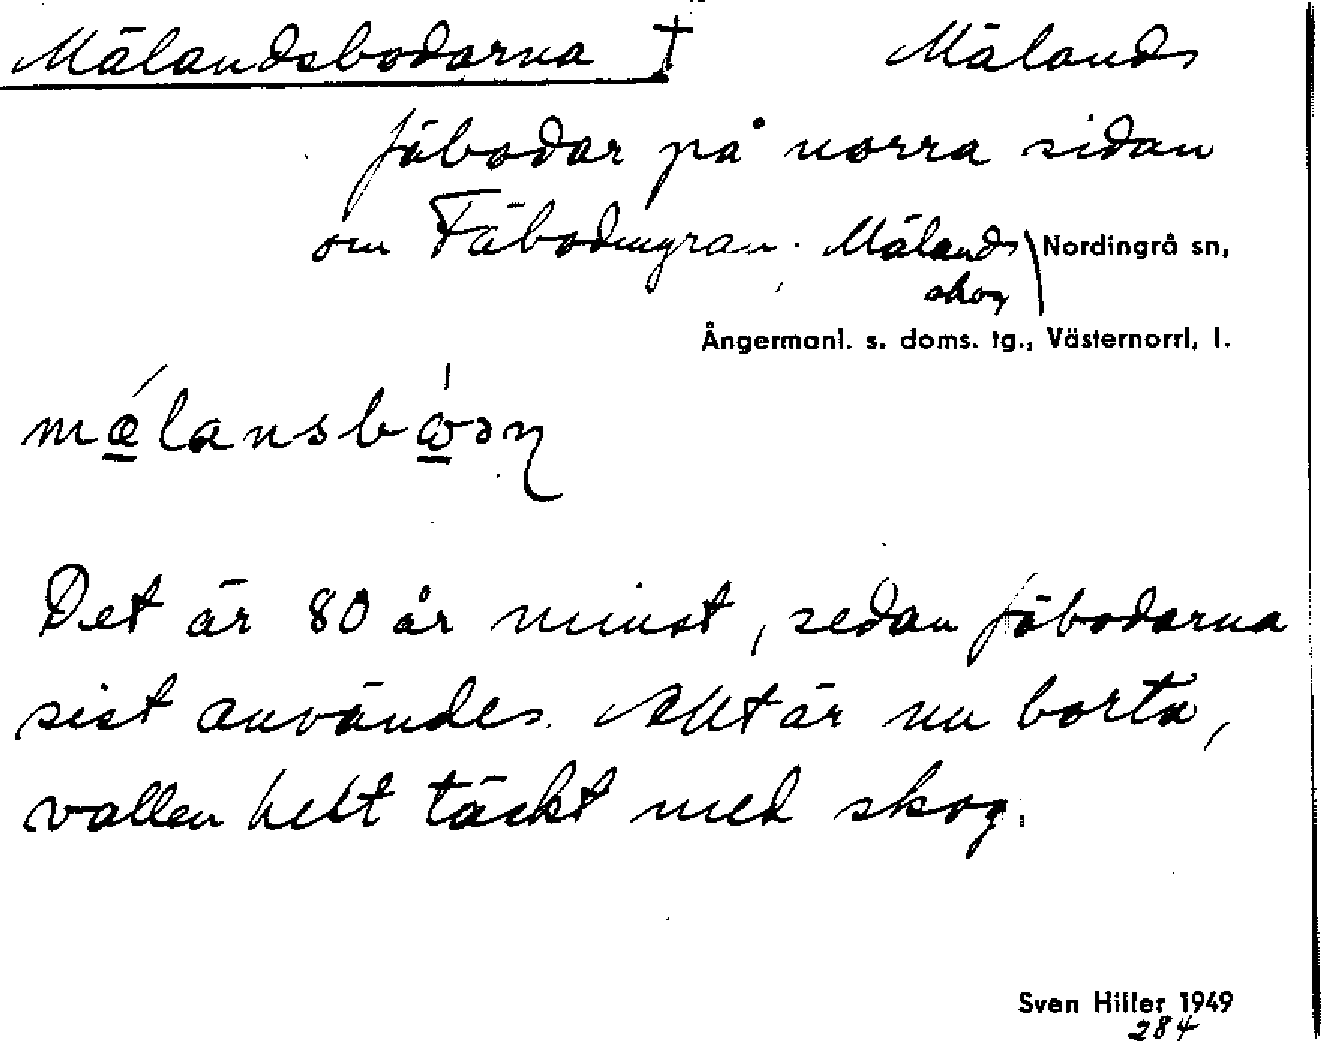 Mälandsbodarna † Mälands
fäbodar på norra sidan
om Fäbodmyran. Mälands Nordingrå sn,
skog
Ångermanl. s. doms. tg., Västernorrl. l.
mǽlansbɷ́ɔn
Det är 80 år minst, sedan fäbodarna
sist användes. Allt är nu borta,
vallen helt täckt med skog.
Sven Hiller 1949
284